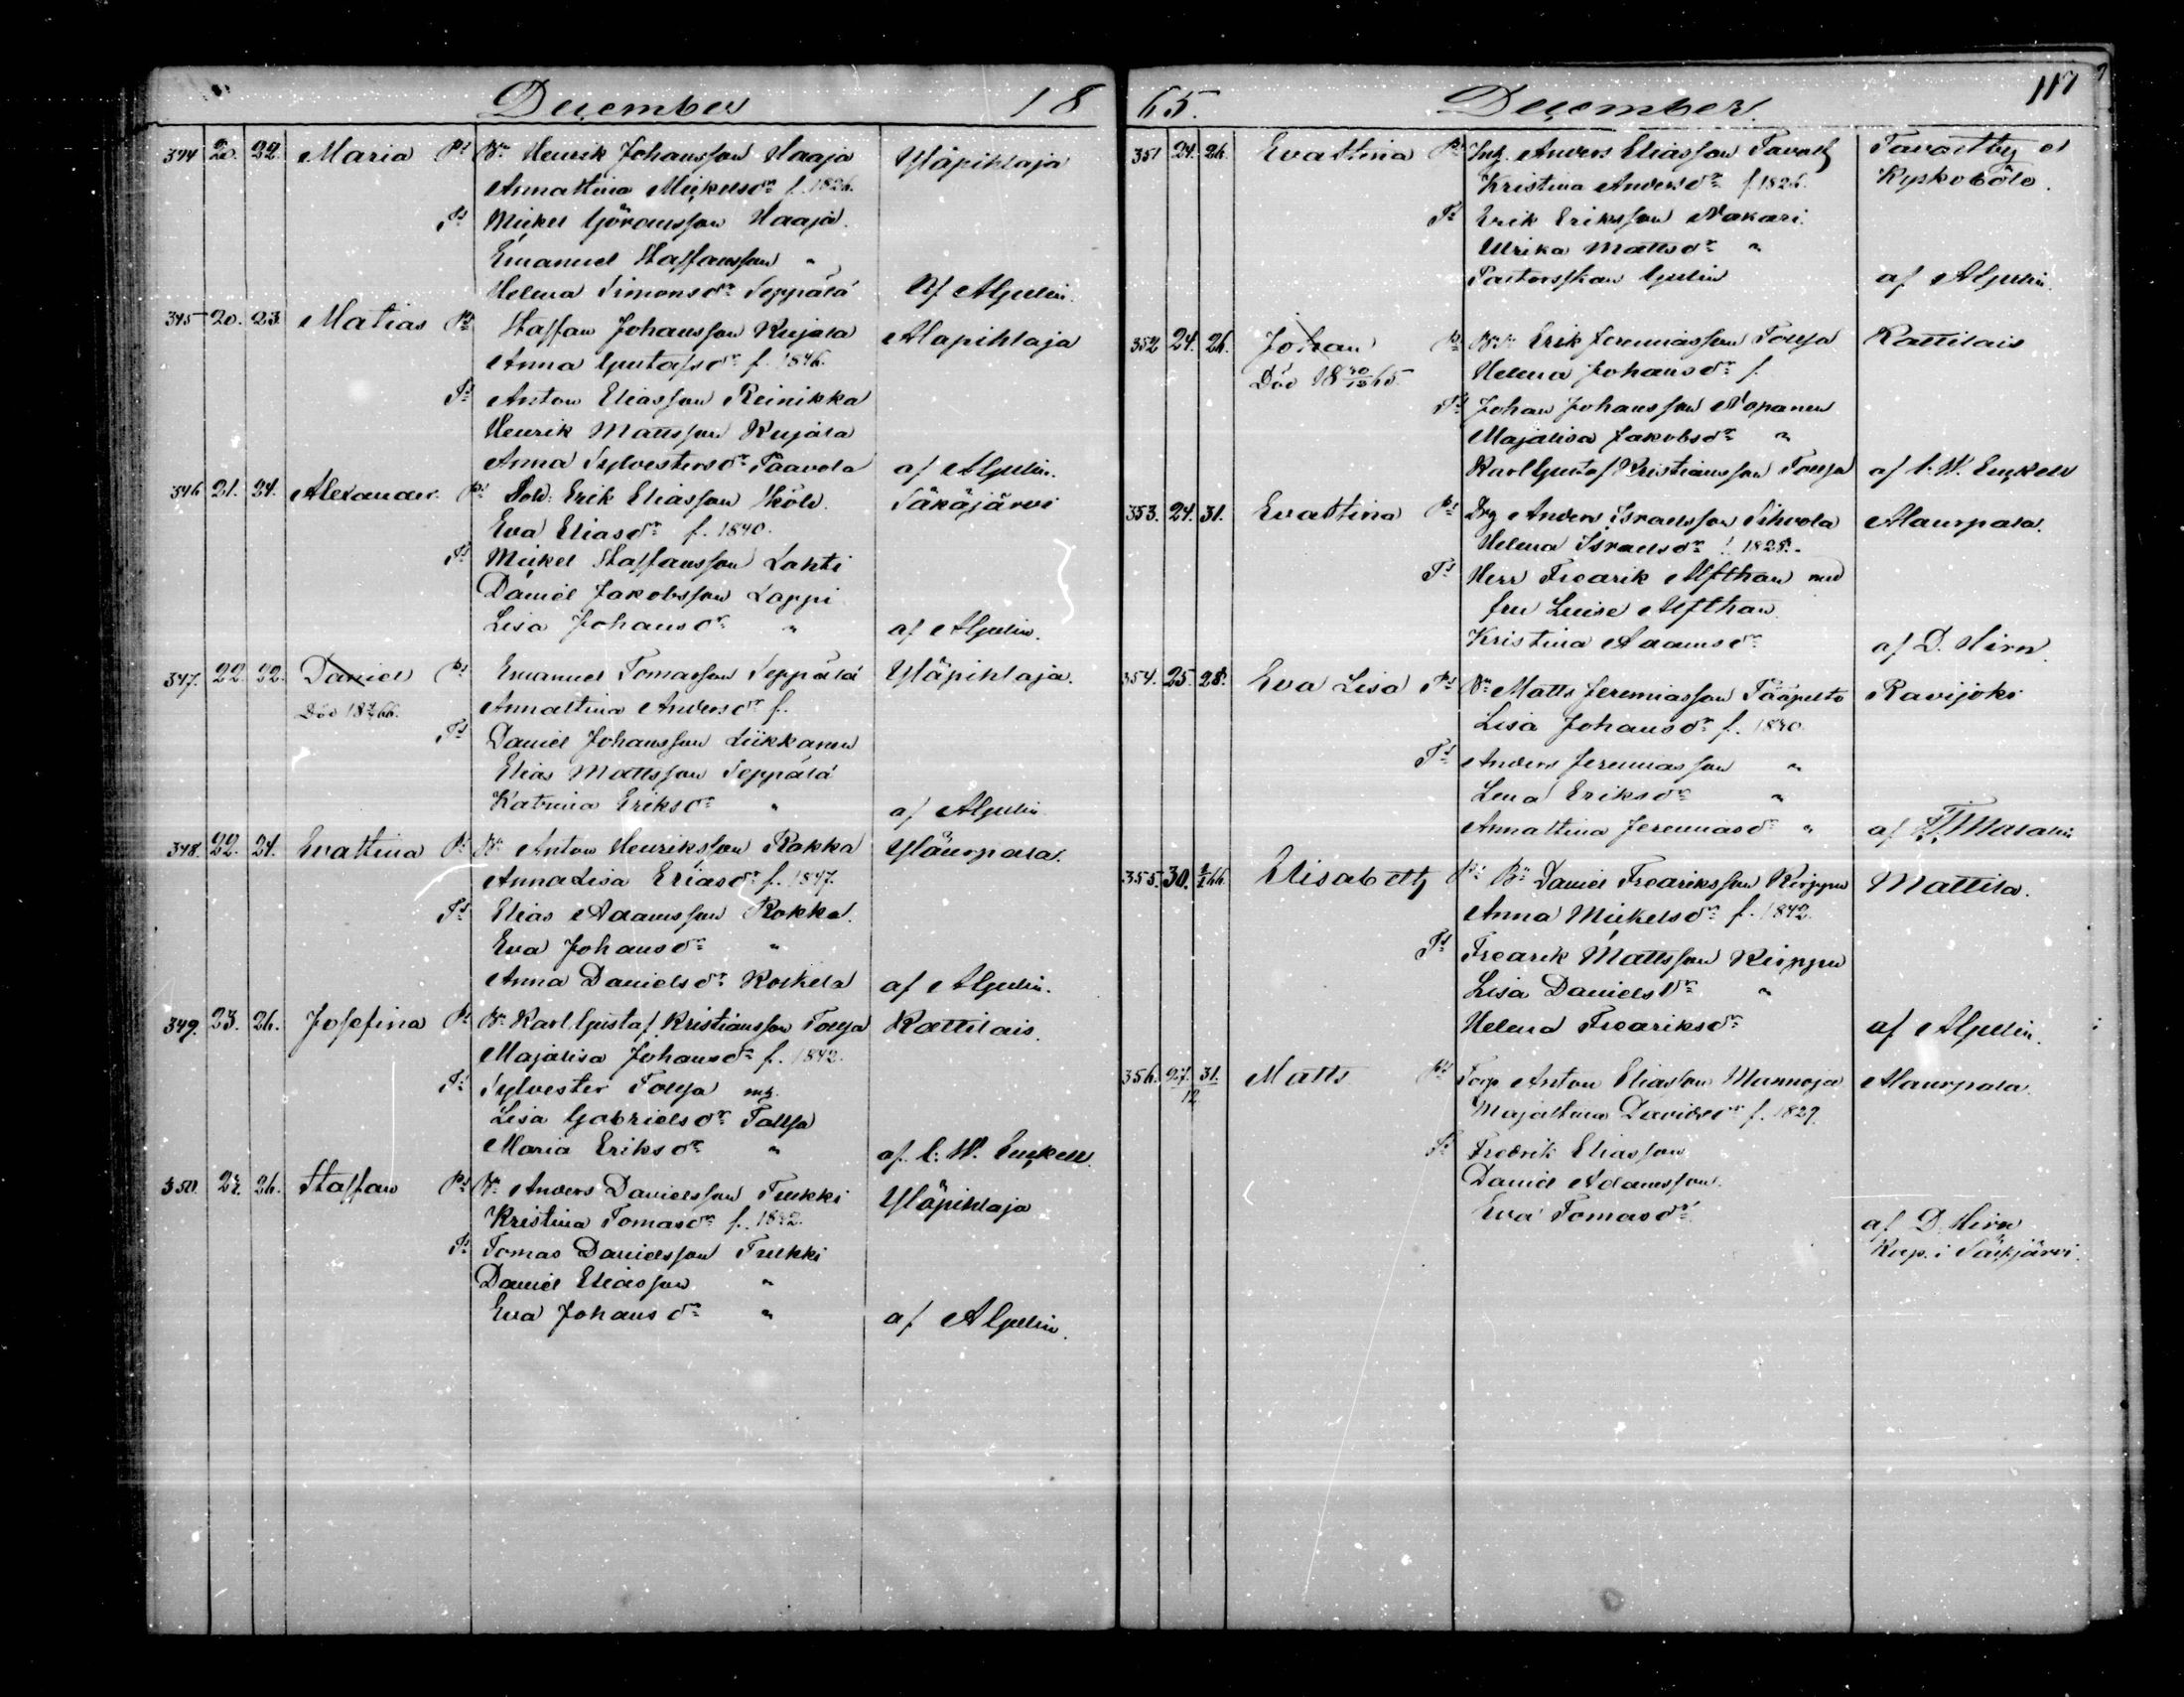 December 18
344 20. 22. Maria Ps Bn Henrik Johansson Haaja Yläpihlaja
Annastina Mickelsdr f. 1826.
Ts Mickel Göransson Haaja.
Emanuel Staffansson "
Helena Simonsdr Seppälä Af AGulin.
345 20. 23. Matias Ps Staffan Johansson Kujala Alapihlaja
Anna Gustafsdr f. 1846.
Ts Anton Eliasson Reinikka
Henrik Mattsson Kujala
Anna Sylvestersdr Paavola af AGulin.
346 21. 24. Alexander. Ps Sold: Erik Eliasson Sköld. Säkäjärvi
Eva Eliasdr f. 1840.
Ts Mickel Staffansson Lahti
Daniel Jakobsson Lappi
Lisa Johansdr " af AGulin.
347. 22. 22. Daniel Ps Emanuel Tomasson Seppälä Yläpihlaja.
Död 18 66. Annastina Andersdr f.
Ts Daniel Johansson Liikkanen
Elias Mattsson Seppälä
Katrina Eriksdr " af AGulin
348. 22. 24. Evastina Ps Bn Anton Henriksson Rokka Yläurpala.
Annalisa Eliasdr f. 1847.
Ts Elias Adamsson Rokka.
Eva Johansdr "
Anna Danielsdr Koskela af AGulin.
349. 23. 26. Josefina Ps Bn Karl Gustaf Kristiansson Tollja Kattilais.
Majalisa Johansdr f. 1842.
Ts Sylvester Tollja
Lisa Gabrielsdr Tollja
Maria Eriksdr " af C. W. Enckell.
350. 23. 26. Staffan Ps Bn Anders Danielsson Tukki Yläpihlaja
Kristina Tomasdr f. 1842.
Ts Tomas Danielsson Tukki
Daniel Eliasson "
Eva Johansdr " af AGulin.
65. December. 117
351 24. 26. Evastina Ps Anders Eliasson Tavast Tavastby
Kristina Andersdr f. 1826.
Ts Erik Eriksson Nakari.
Ulrika Mattsdr "
Pastorskan Gulin af AGulin.
352 24. 26. Johan Ps Bn Erik Jeremiasson Tollja Kattilais
Död 18 30/12 65. Helena Johansdr f.
Ts Johan Johansson Nopanen
Majalisa Jakobsdr "
Karl Gustaf Kristiansson Tollja af C. W. Enckell
353. 24. 31. Evastina Ps Anders Israelsson Sihvola Alaurpala.
Helena Israelsdr f. 1828.
Ts Herr Fredrik Alfthan med
fru Luise Alfthan
Kristina Adamsdr af D. Hirn.
354. 25. 28. Eva Lisa Ps Bn Matts Jeremiasson Pääpelto Ravijoki
Lisa Johansdr f. 1840.
Ts Anders Jeremiasson "
Lena Eriksdr "
Annastina Jeremiasdr " af
355. 30. Elisabeth Ps Bn Daniel Fredriksson Kirppu Mattila.
Anna Mickelsdr f. 1842.
Ts Fredrik Mattsson Kirppu
Lisa Danielsdr "
Helena Fredriksdr af AGulin.
356. 27. 31. Matts Ps Torp Anton Eliasson Mannoja Alaurpala.
12
Majastina Davidsdr f. 1829.
Ts Fredrik Eliasson
Daniel Adamsson.
Eva Tomasdr
af D. Hirn
Kap. i Säkjärvi.